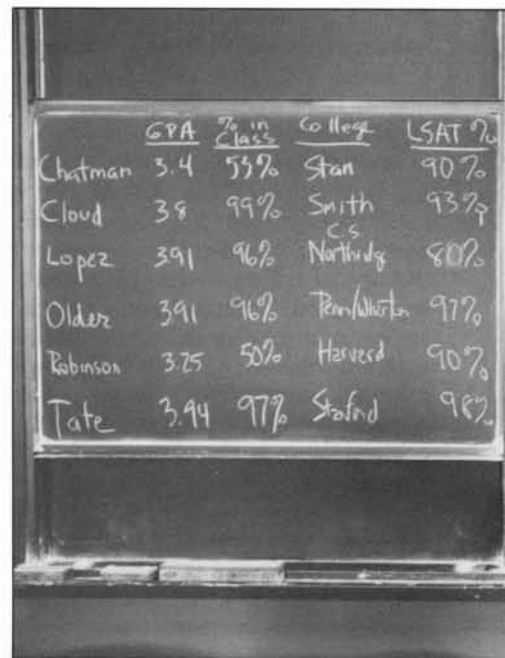 GPA % in Class College LSAT %
Chatman 3.4 53% Stan 90%
Cloud 38 99% Smith 93%
Lopez 391 96% C.S. Northridg 80%
Older 391 96% Penn/Wharton 97%
Robinson 3.25 50% Harvard 90%
Tate 3.94 97% Stafnd 98%